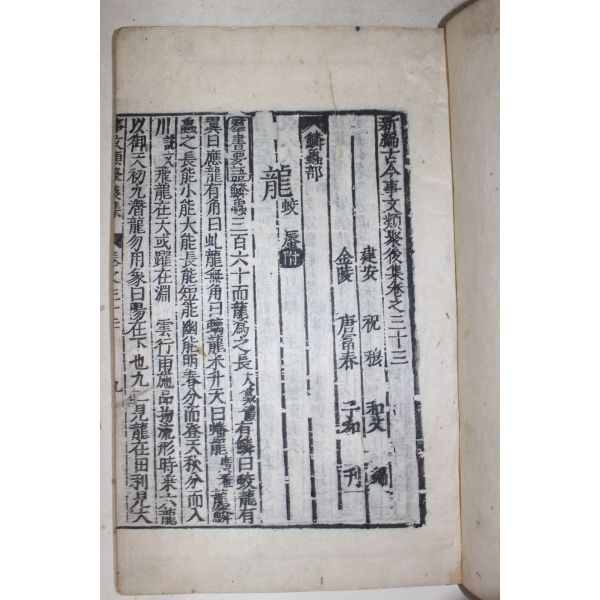 新編古今事文類聚後集卷之三十三
建安 祝穆 和父 編
金陵 唐富春 子和 刊
鱗蟲部
龍 蛟蜃附
羣書要語鱗蟲三百六十而龍爲之長大戴書有鱗曰蛟龍有
翼曰應龍有角曰虬龍無角曰螭龍未升天曰蟠龍廣雅龍鱗
蟲之長能小能大能長能短能幽能明春分而登天秋分而入
川說文飛龍在天或躍在淵 雲行雨施品物流形時乗六龍
以御天初九潛龍勿用象曰陽在下也九二見龍在田利見大
事文類聚後集 卷之三十三 九